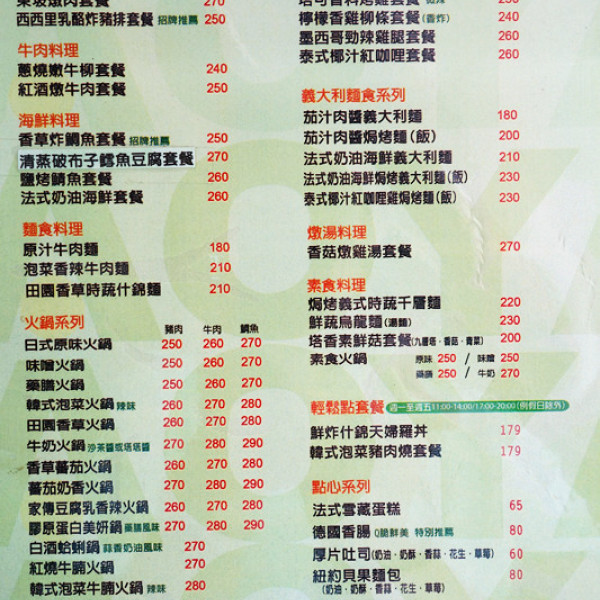 東坡燉肉套餐 270
西西里乳酪炸豬排套餐 招牌推薦 250
牛肉料理
蔥燒嫩牛柳套餐 240
紅酒燉牛肉套餐 250
海鮮料理
香草炸鯛魚套餐 招牌推薦 250
清蒸破布子鱈魚豆腐套餐 270
鹽烤鯖魚套餐 260
法式奶油海鮮套餐 260
麵食料理
原汁牛肉麵 180
泡菜香辣牛肉麵 210
田園香草時蔬什錦麵 210
火鍋系列 豬肉 牛肉 鯛魚
日式原味火鍋 250 260 270
味噌火鍋 250 260 270
藥膳火鍋 250 260 270
韓式泡菜火鍋 辣味 260 270 280
田園香草火鍋 260 270 280
牛奶火鍋 沙茶醬或塔塔醬 270 280 290
香草蕃茄火鍋 260 270 280
蕃茄奶香火鍋 270 280 290
家傳豆腐乳香辣火鍋 260 270 280
膠原蛋白美妍鍋 藥膳風味 270 280 290
白酒蛤蜊鍋 蒜香奶油風味 270
紅燒牛腩火鍋 270
韓式泡菜牛腩火鍋 辣味 280
檸檬香雞柳條套餐 (香炸) 240
墨西哥勁辣雞腿套餐 260
泰式椰汁紅咖哩套餐 260
義大利麵食系列
茄汁肉醬義大利麵 180
茄汁肉醬焗烤麵(飯) 200
法式奶油海鮮義大利麵 210
法式奶油海鮮焗烤義大利麵(飯) 230
泰式椰汁紅咖哩雞焗烤麵(飯) 230
燉湯料理
香菇燉雞湯套餐 270
素食料理
焗烤義式時蔬千層麵 220
鮮蔬烏龍麵 (湯麵) 230
塔香素鮮菇套餐 (九層塔・香菇・青菜) 200
素食火鍋 原味 250 / 味噌 250
藥膳 250 / 牛奶 270
輕鬆點套餐 週一至週五11:00-14:00/17:00-20:00(例假日除外)
鮮炸什錦天婦羅丼 179
韓式泡菜豬肉燒套餐 179
點心系列
法式雪藏蛋糕 65
德國香腸 Q脆鮮美 特別推薦 80
厚片吐司 (奶油・奶酥・香蒜・花生・草莓) 60
紐約貝果麵包 80
(奶油・奶酥・香蒜・花生・草莓)